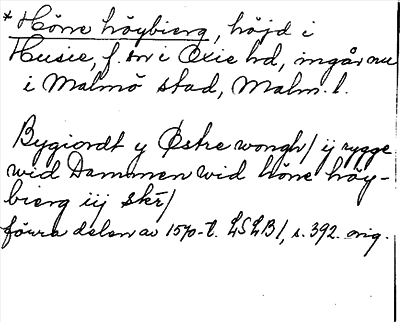 * Hörre höybierg, höjd i
Husie, f. sn i Oxie hd, ingår nu
i Malmö stad, Malm. l.
Bygiordt y Østre wongh/ ij rygge
wid Dammen wid hörre höy-
bierg iij skr/
förra delen av 1570-t. LSLB 1, s. 392. orig.